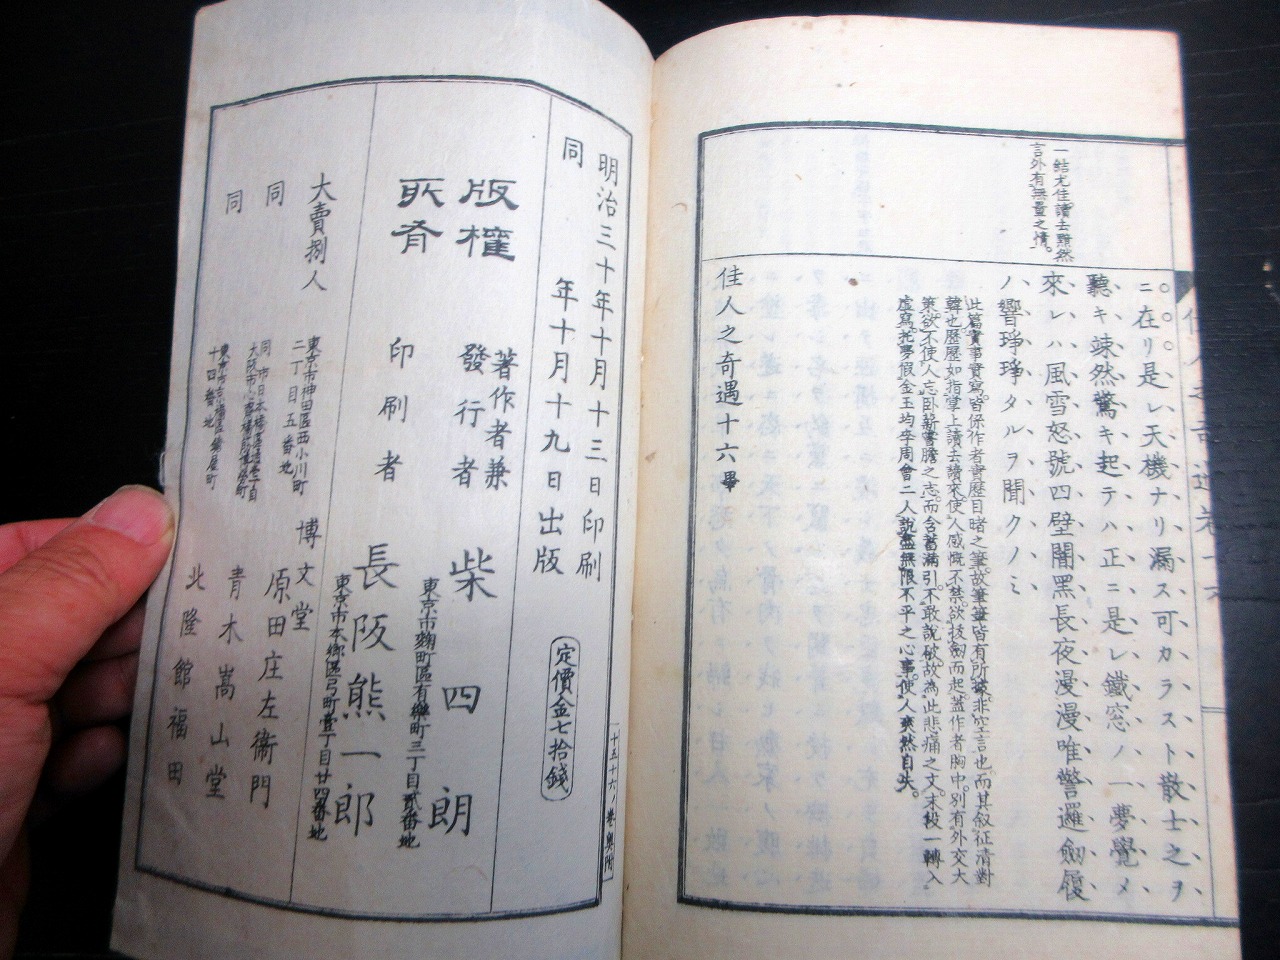 一結尤佳讀去黯然
言外有無量之情。
ニ在リ是レ天機ナリ漏ス可カラスト散士之ヲ
聽キ竦然驚キ起テハ正ニ是レ鐵窓ノ一夢覺メ
來レハ風雪怒號四壁闇黑長夜漫漫唯警邏劒履
ノ響琤琤タルヲ聞クノミ
此篇實事實寫。皆係作者實歷目睹之筆。故筆筆皆有所據。非空言也。而其叙征清對
韓也。歷歷如指掌上。讀去讀來。使人感慨不禁。欲拔劒而起。蓋作者胸中。別有外交大
策。欲不使人忘臥薪嘗膽之志。而含蓄滿引。不敢說破。故為此悲痛之文。末段一轉入
虛寫。托夢假金玉均李周會二人。說盡無限不平之心事。使人爽然自失。
佳人之奇遇十六畢
明治三十年十月十三日印刷
同 年十月十九日出版
定價金七拾錢
十五十六ノ卷奥附
版權
所有
著作者兼
發行者
柴四朗
東京市麹町區有樂町三丁目貳番地
印刷者
長阪熊一郎
東京市本鄉區弓町壹丁目廿四番地
大賣捌人
東京市神田區西小川町
二丁目五番地
博文堂
原田庄左衞門
同
大阪市心齋橋
青木嵩山堂
同
東京市京橋區
十四番地
北隆館福田